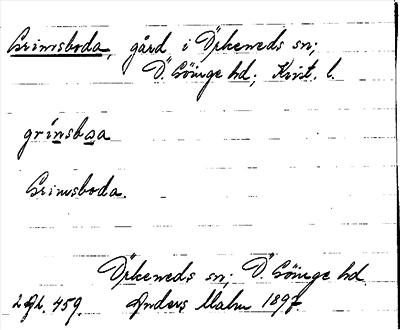 Grimsboda, gård i Örkeneds sn;
Ö. Göinge hd; Krist. l.
grinsboa
Grimsboda.
Örkeneds sn; Ö. Göinge hd.
459. Anders Malm